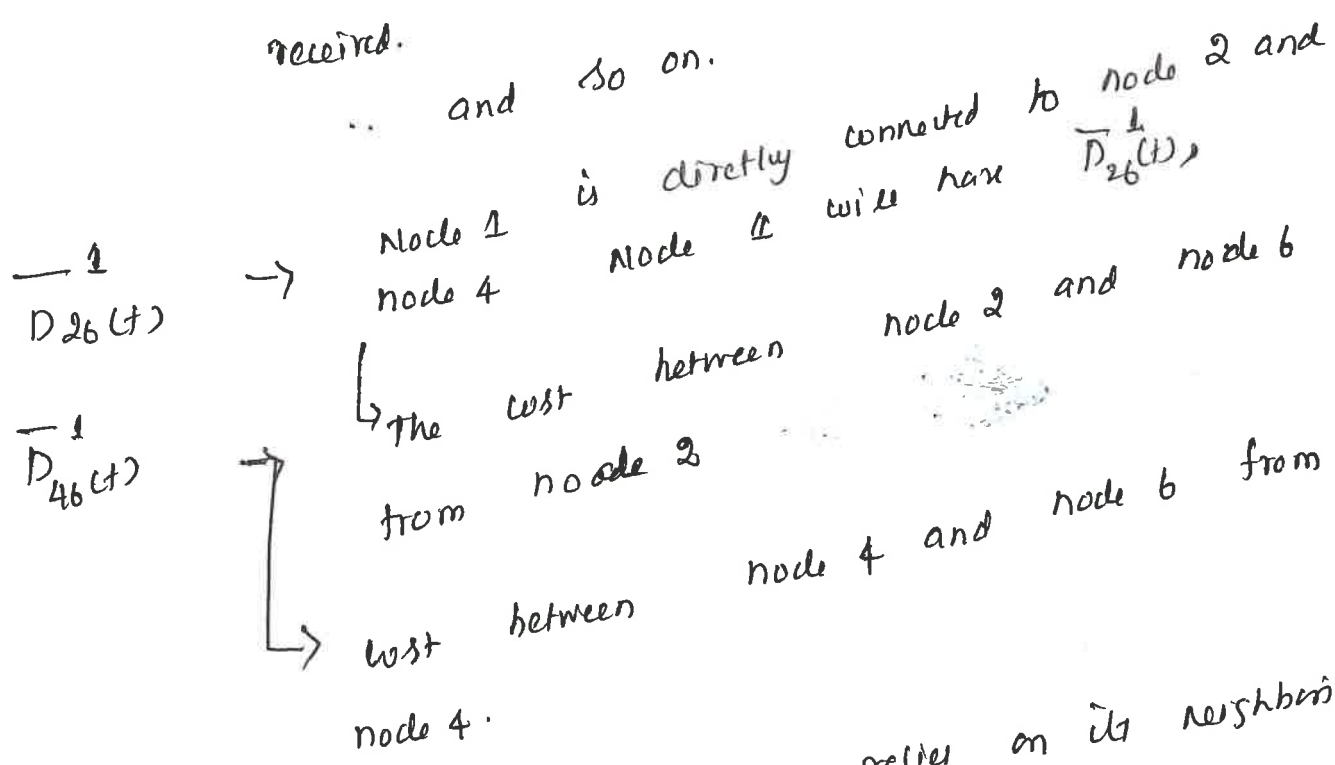 received.
.. and so on.
Node 1 is directly connected to node 2 and
D̅¹26(t) → node 4 Node 1 will have D̅¹26(t),
↳ The cost between node 2 and node 6
from node 2
D̅¹46(t) → cost between node 4 and node 6 from
node 4.
relies on its neighbors